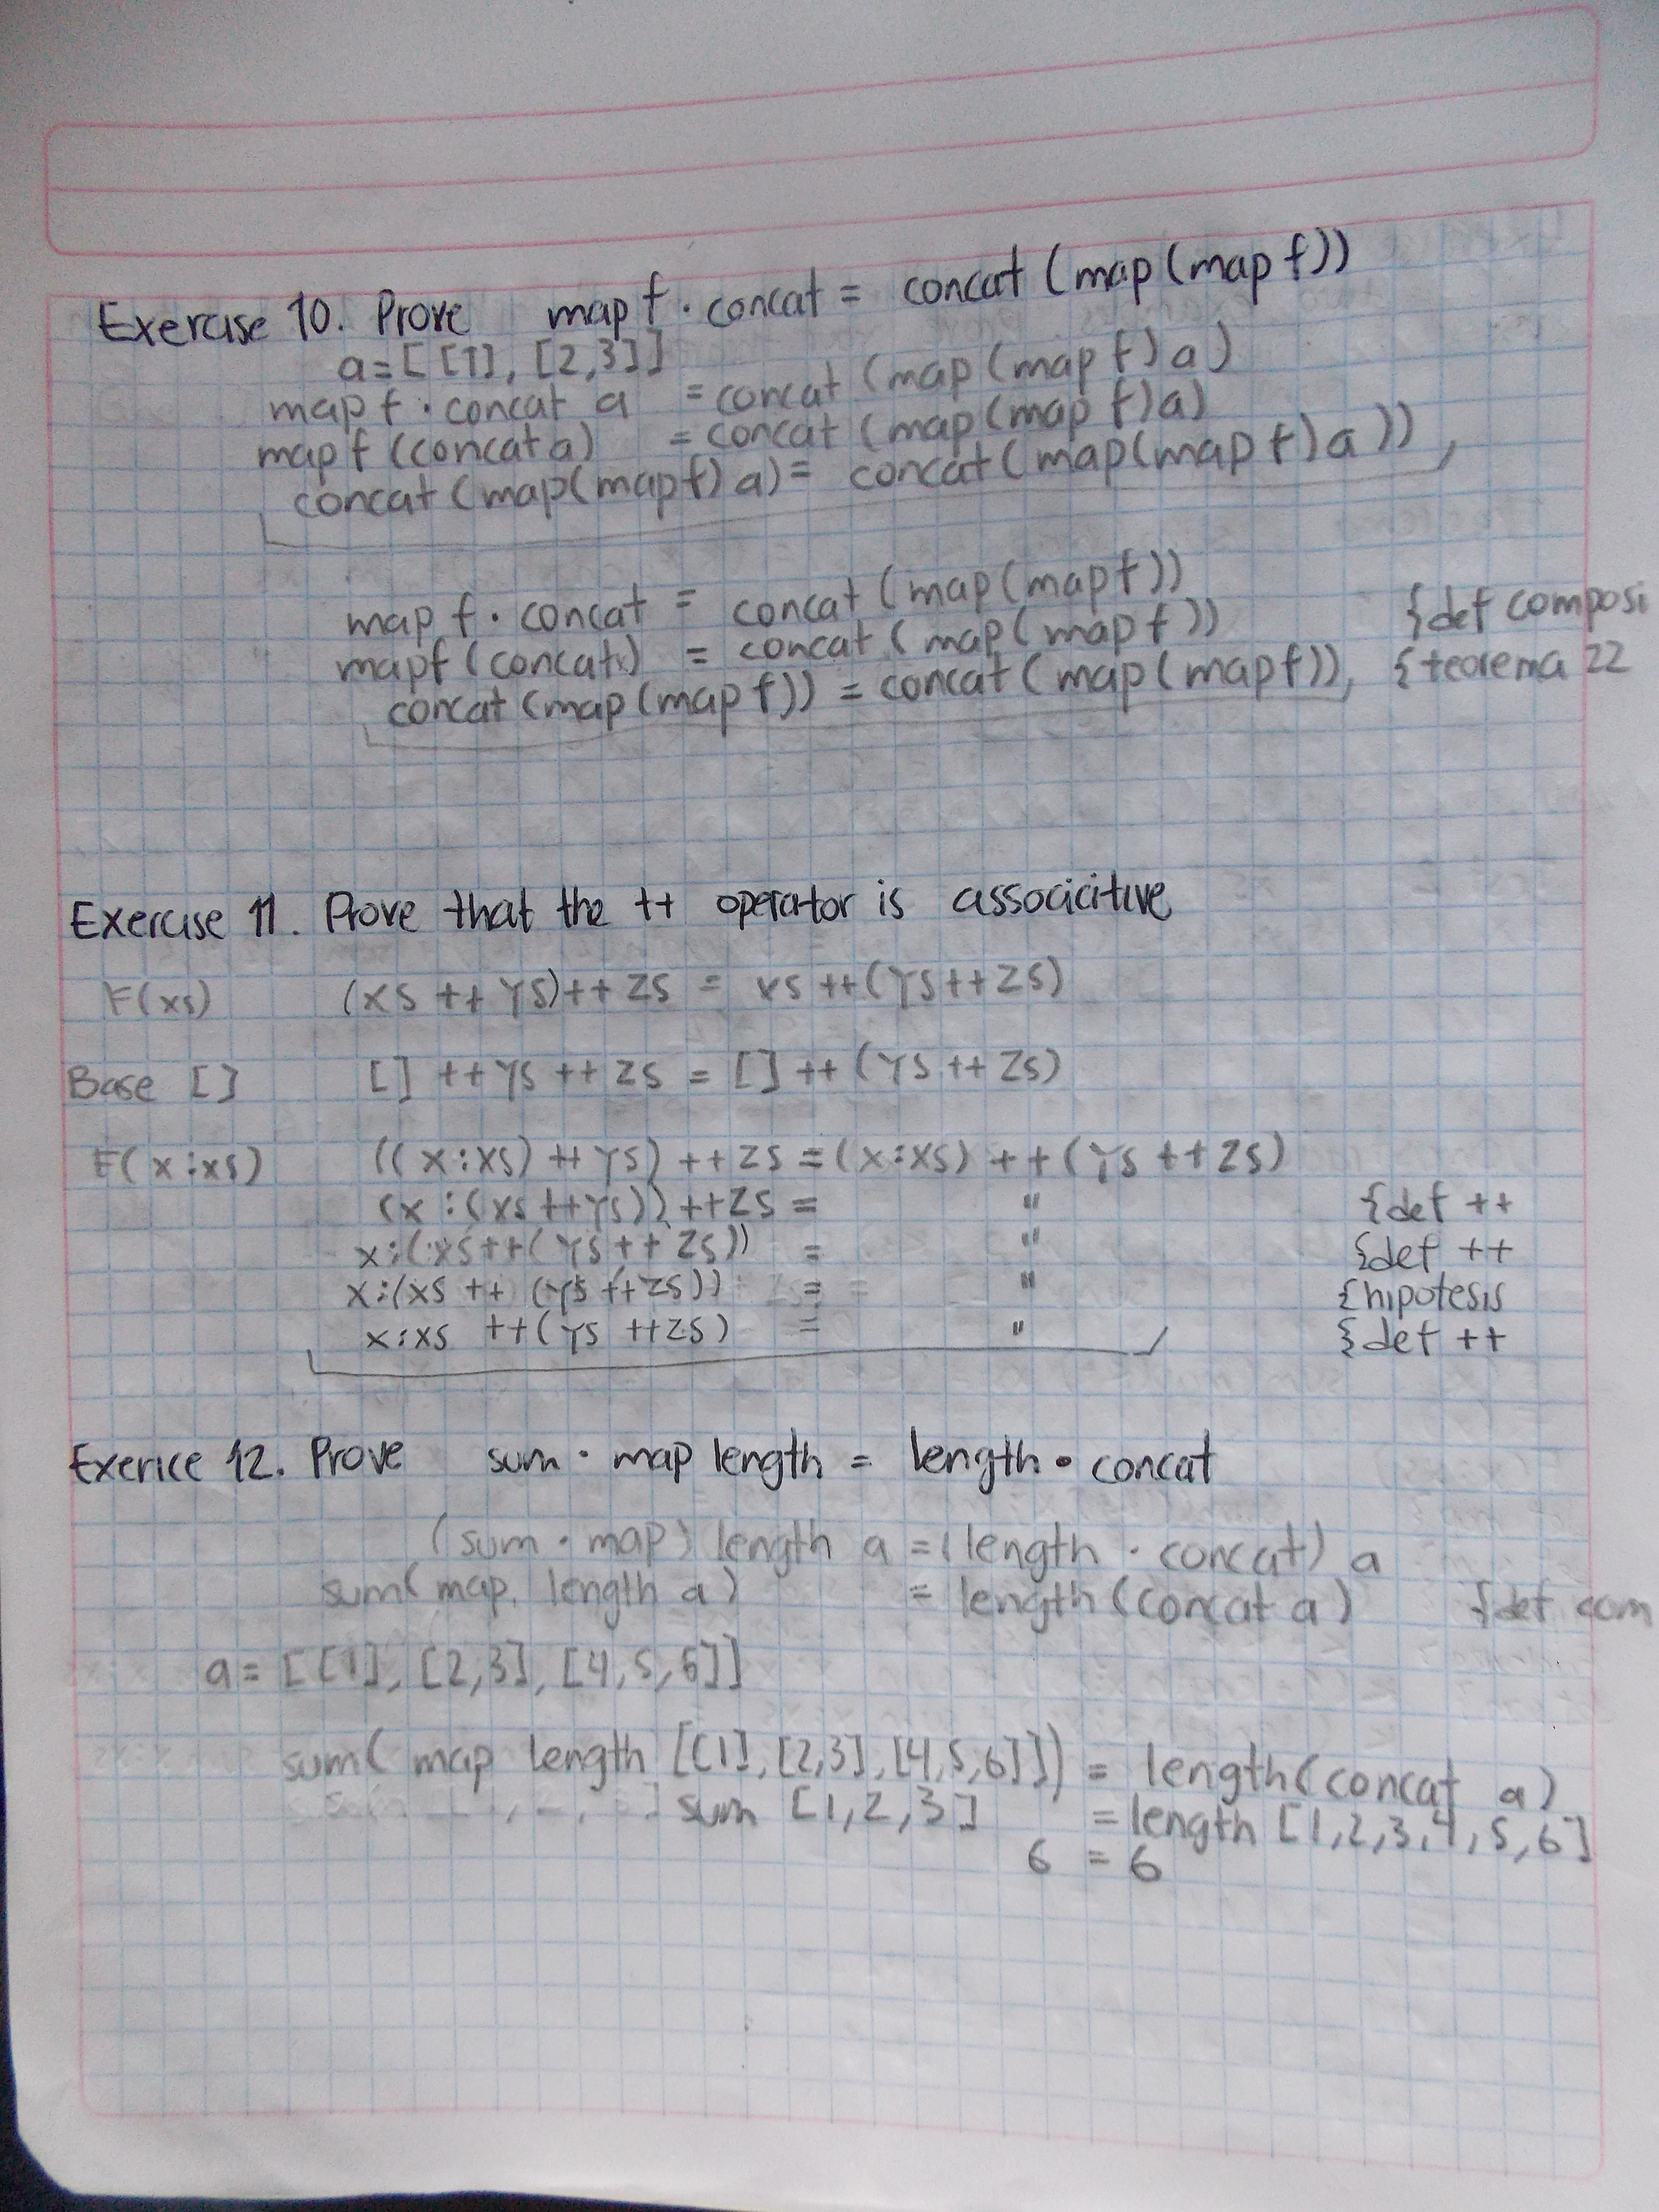 Exercise 10. Prove map f · concat = concat (map (map f))
a = [ [1], [2,3] ]
map f · concat a = concat (map (map f) a)
map f (concat a) = concat (map (map f) a)
concat (map (map f) a) = concat (map (map f) a))
map f · concat = concat (map (map f)) {def composi
map f (concat) = concat (map (map f))
concat (map (map f)) = concat (map (map f)) {teorema 22
Exercise 11. Prove that the ++ operator is associcitive
F(xs) (xs ++ ys) ++ zs = xs ++ (ys ++ zs)
Base [] [] ++ ys ++ zs = [] ++ (ys ++ zs)
F(x:xs) ((x:xs) ++ ys) ++ zs = (x:xs) ++ (ys ++ zs)
(x : (xs ++ ys)) ++ zs = " {def ++
x : (xs ++ (ys ++ zs)) = " {def ++
x : (xs ++ (ys ++ zs)) = " {hipotesis
x:xs ++ (ys ++ zs) = " {def ++
Exerice 12. Prove sum · map length = length · concat
(sum · map) length a = (length · concat) a
sum (map length a) = length (concat a) {def com
a = [ [1], [2,3], [4,5,6] ]
sum ( map length [[1], [2,3], [4,5,6]]) = length (concat a)
sum [1,2,3] = length [1,2,3,4,5,6]
6 = 6